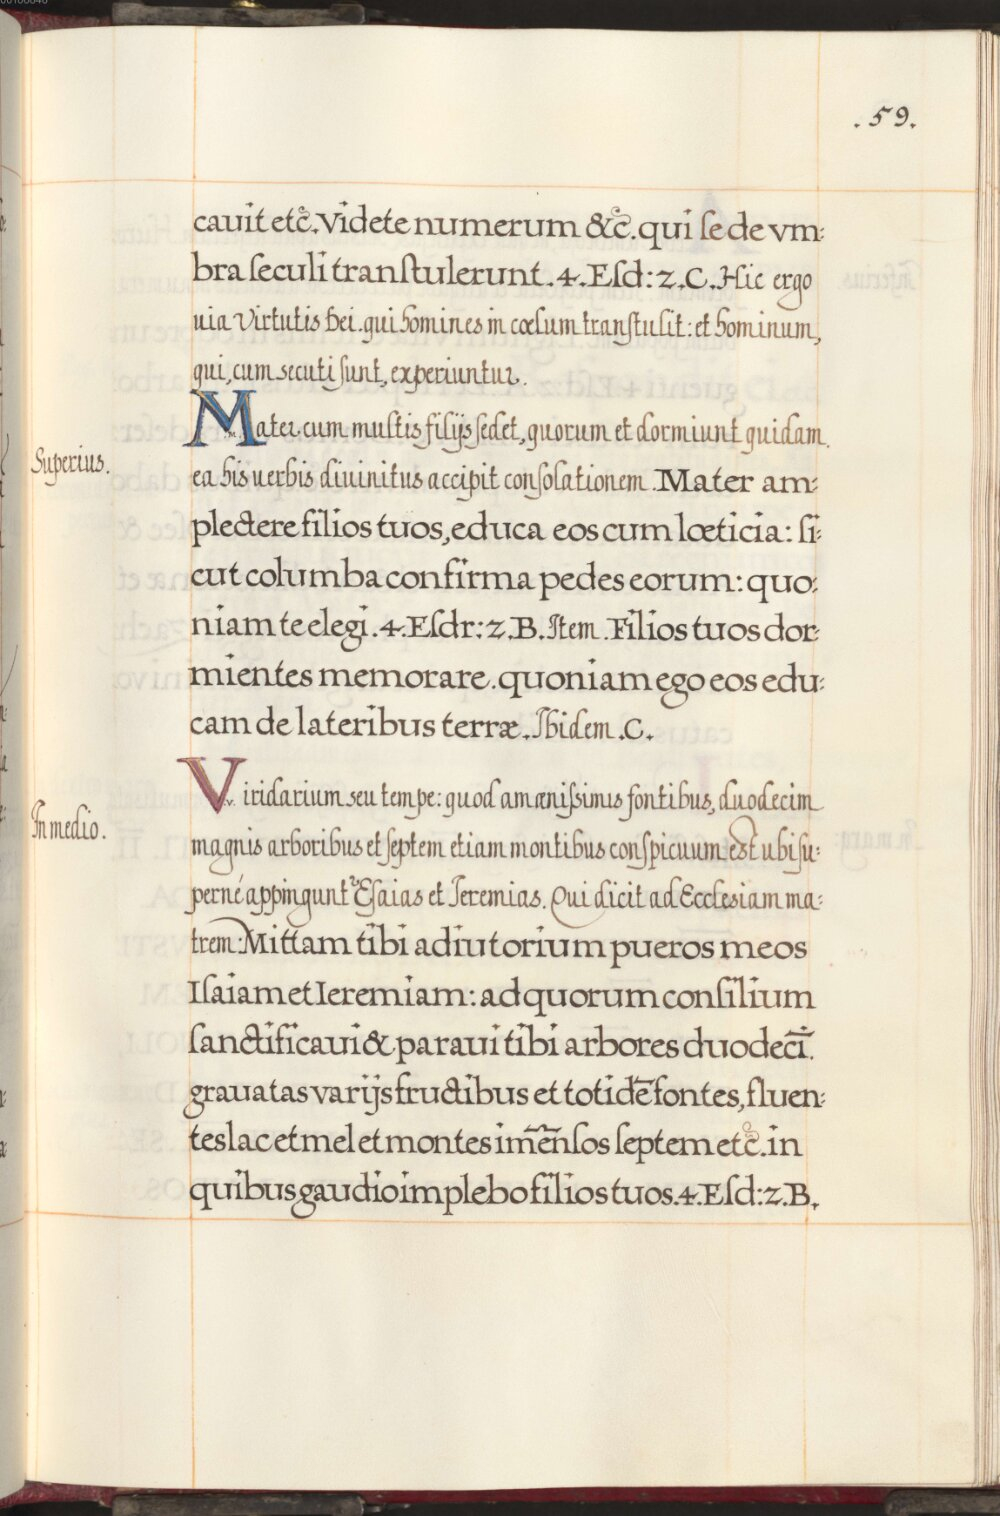 .59.
cauit etc̃. Videte numerum &c̃. qui se de vm:
bra seculi transtulerunt .4. Esd: 2. C. Hic ergo
uia Virtutis Dei. qui homines in cœlum transtulit: et hominum,
qui, cum secuti sunt, experiuntur.
Mater cum multis filijs sedet, quorum et dormiunt quidam.
Superius.
ea his uerbis diuinitus accipit consolationem. Mater am:
plectere filios tuos, educa eos cum lœticia: si:
cut columba confirma pedes eorum: quo:
niam te elegi .4. Esdr: 2. B. Item. Filios tuos dor:
mientes memorare. quoniam ego eos edu:
cam de lateribus terræ. Ibidem .C.
Viridarium seu tempe: quod amænissimis fontibus, duodecim
In medio.
magnis arboribus et septem etiam montibus conspicuum est ubi su:
perné appingunt Esaias et Jeremias. Qui dicit ad Ecclesiam ma:
trem: Mittam tibi adiutorium pueros meos
Isaiam et Ieremiam: ad quorum consilium
sanctificaui & paraui tibi arbores duodecı̃.
grauatas varijs fructibus et totidẽ fontes, fluen:
tes lac et mel et montes im̃ẽnsos septem etc̃. in
quibus gaudio implebo filios tuos. 4. Esd: 2. B.